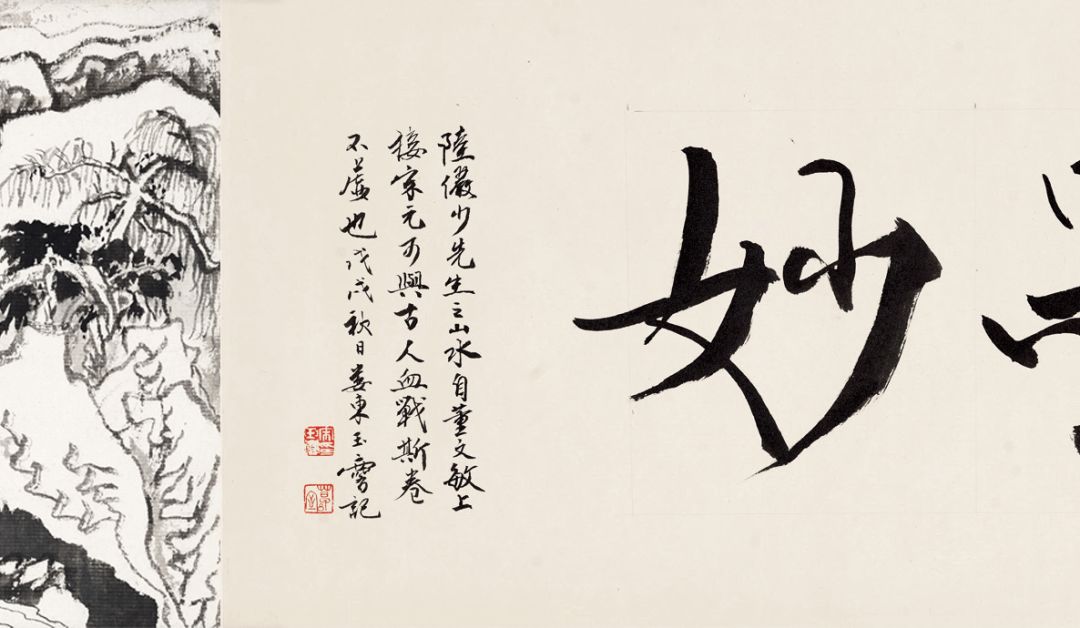 妙
陸儼少先生之山水自董文敏上
接宋元可與古人血戰斯卷
不虛也戊戌秋日婁東玉記